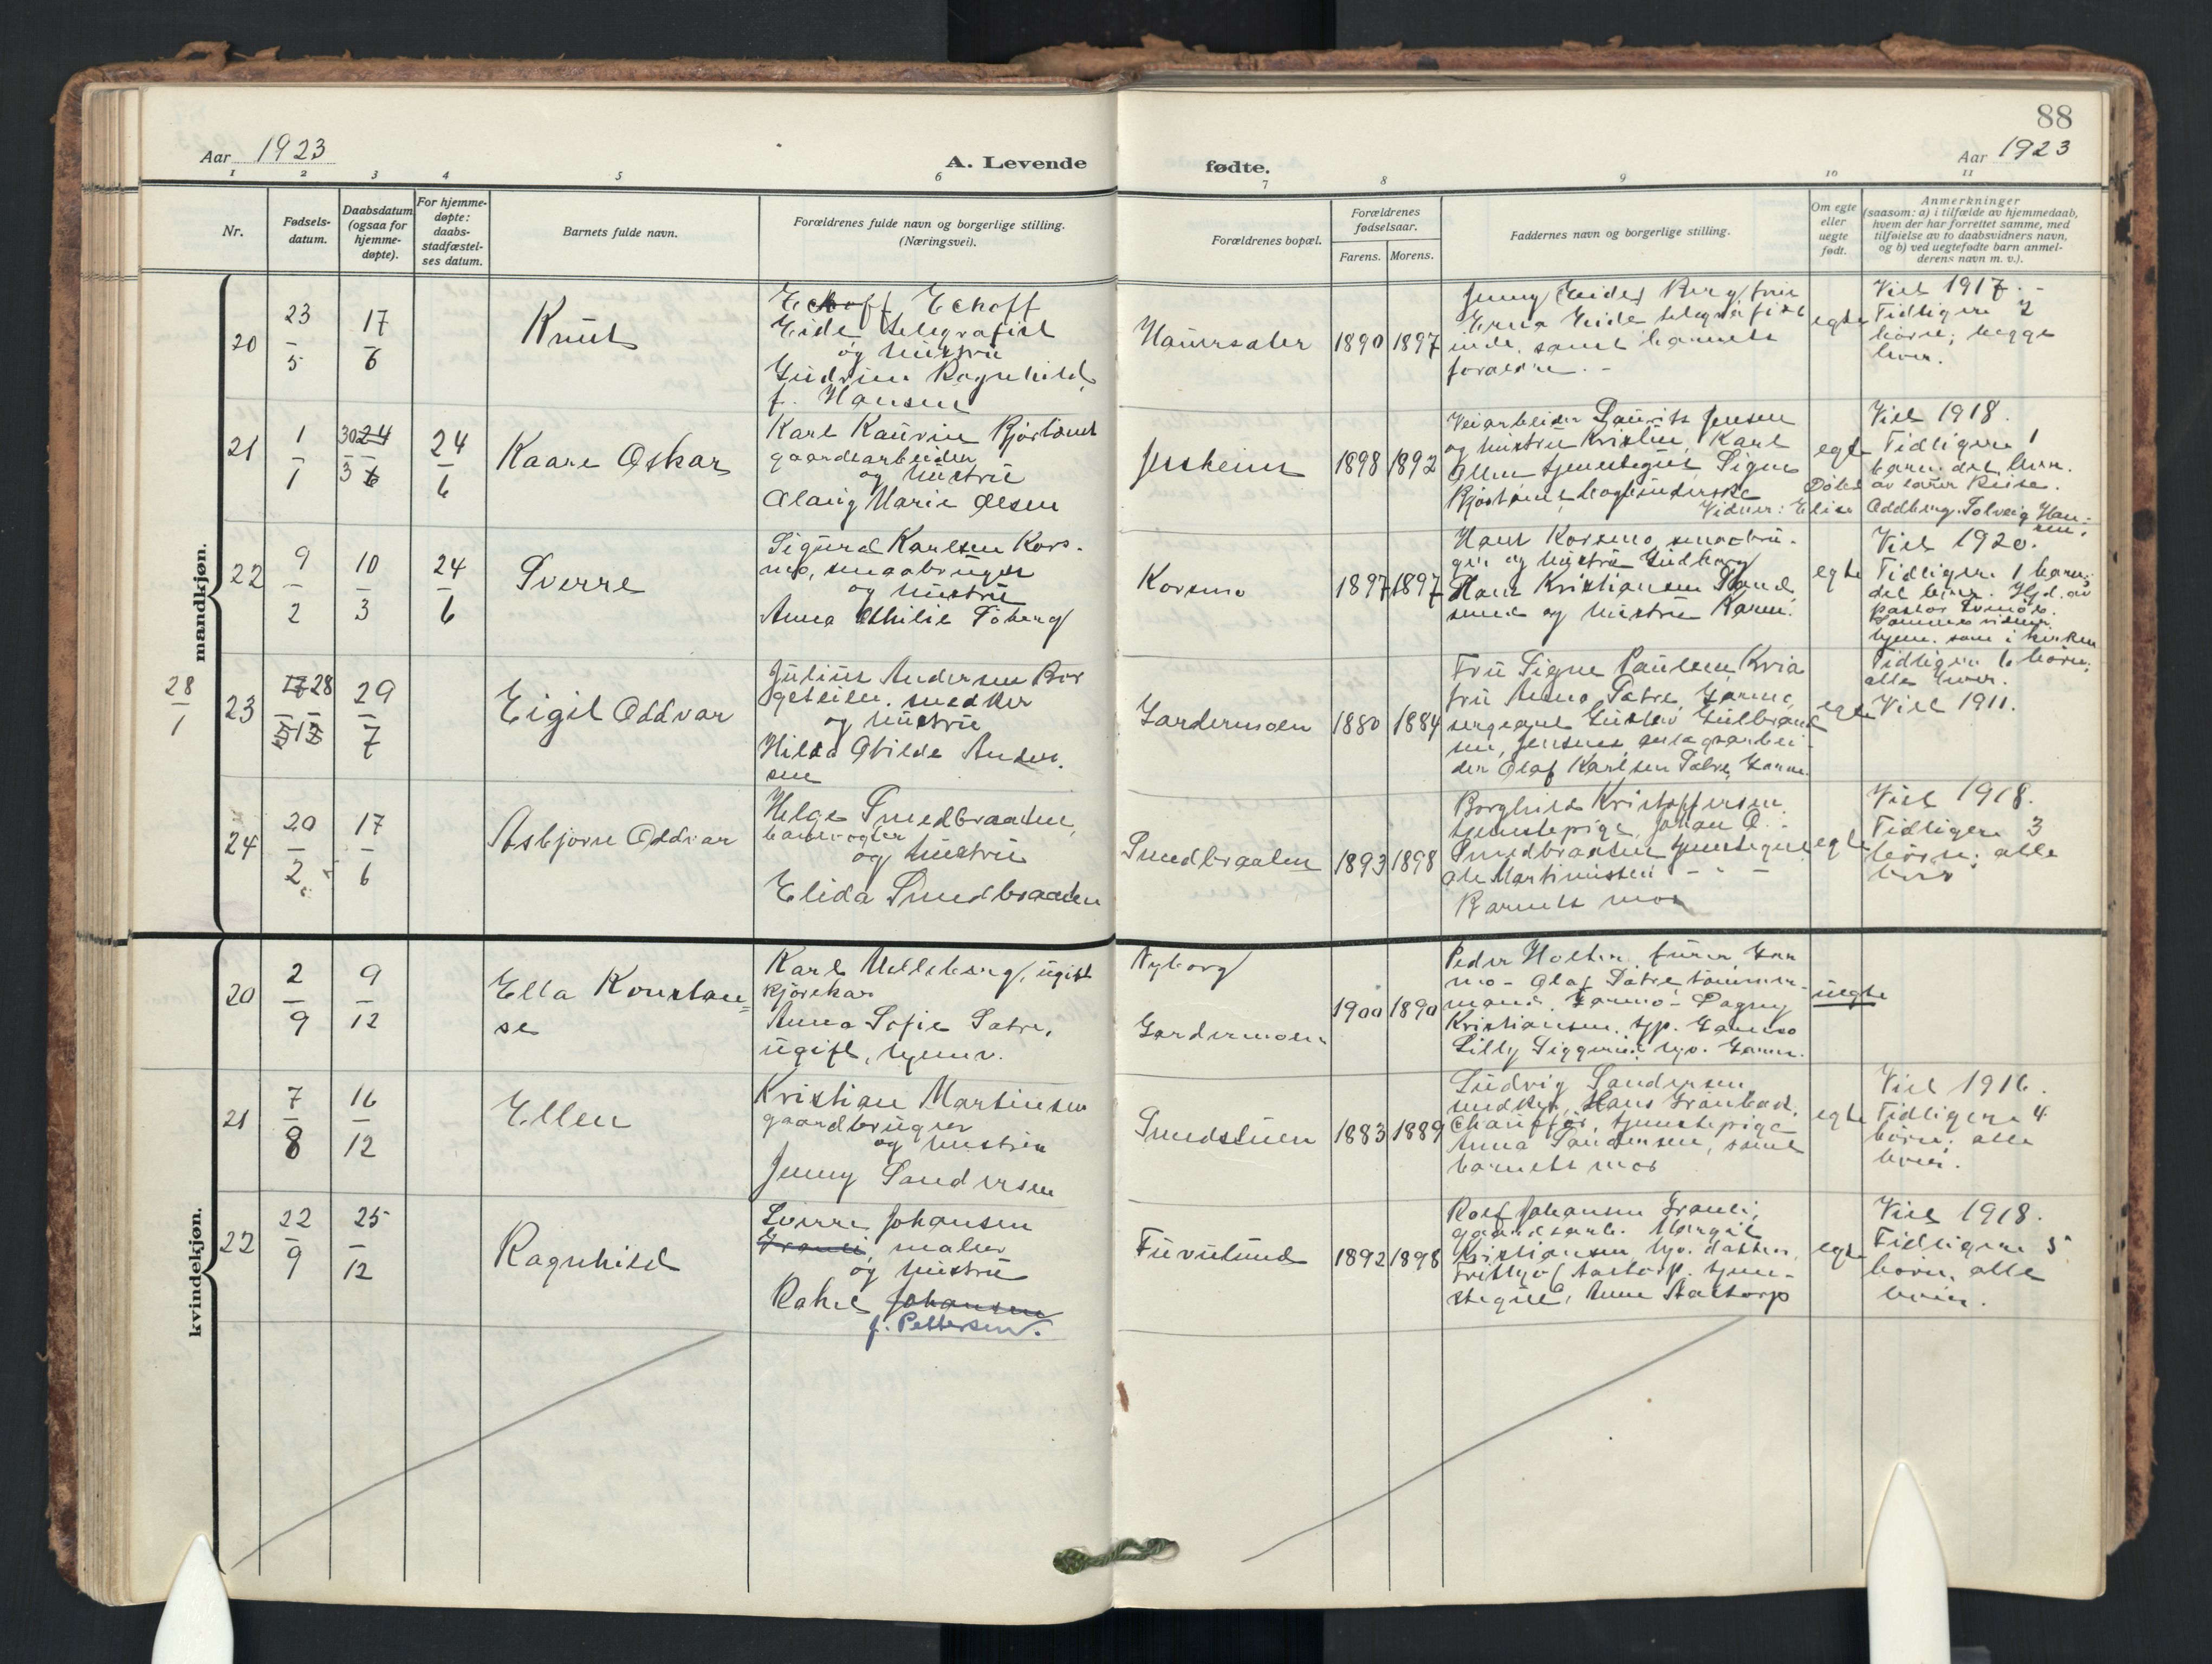 88
Aar 1923
A. Levende
fødte.
Aar 1923
1 2 3 4 5 6 7 8 9 10 11
Nr.
Fødsels-
datum.
Daabsdatum
(ogsaa for
hjemme-
døpte).
For hjemme-
døpte:
daabs-
stadfæstel-
ses datum.
Barnets fulde navn.
Forældrenes fulde navn og borgerlige stilling.
(Næringsvei).
Forældrenes bopæl.
Forældrenes
fødselsaar.
Farens. Morens.
Faddernes navn og borgerlige stilling.
Om egte
eller
uegte
født.
Anmerkninger
(saasom: a) i tilfælde av hjemmedaab,
hvem der har forrettet samme, med
tilføielse av to daabsvidners navn,
og b) ved uegtefødte barn anmel-
derens navn m. v.).
mandkjøn.
20
23
5
17
6
Knut
Echoff Echoff
Eide telegrafist
og hustru
Gudrun Ragnhild
f. Hansen
Hauersæter
1890 1897
Jenny (Eide) Berg, frue
Erna Eide telegrafist
inde, samt barnets
forældre. -
egte
Viet 1917. -
Tidligere 2
børn; begge
lever.
21
1
1
30 24
3 6
24
6
Kaare Oskar
Karl Kaurin Bjørtomt
gaardsarbeider
og hustru
Olaug Marie Olsen
Jessheim
1898 1892
Veiarbeider Laurits Jensen
og hustru Kristine, Karl
Olsen tjenestegut Signe
Bjørtomt
egte
Viet 1918.
Tidligere 1
barn. det lever.
Døbt av lærer Riise.
Vidner: Elise Oddberg. Solveig Han-
sen.
22
9
2
10
3
24
6
Sverre
Sigurd Karlsen Kors-
mo, smaabruger
og hustru
Anna Othilie Foberg
Korsmo
1897 1897
Hans Korsmo, smaabru-
ger og hustru Gudborg
Hans Kristiansen Sand
sund og hustru Karen.
egte
Viet 1920.
Tidligere 1 barn;
det lever. Hjd. av
pastor
Samme vidner
hjem. som i kirken
28
1
23
17 28
5 12
29
7
Eigil Oddvar
Julius Andersen Bor
geteien. snedker
og hustru
Hilda Otilde Ander-
sen
Gardermoen
1880 1884
Fru Signe Paulsen, Kvia
fru Anna Sætre, Garmo,
sergeant Gustav Gulbrand
sen, Jensens, anlægsarbei-
der Olaf Karlsen Sætre, Garmo.
egte
Tidligere 6 børn;
alle lever.
Viet 1911.
24
20
2
17
6
Asbjørn Oddvar
Helge Smedbraaten,
banevogter
og hustru
Elida Smedbraaten
Smedbraaten
1893 1898
Borghild Kristoffersen
tjenestepige, Johan O.
Smedbraaten tjenestegut
Ole Martinussen - " -
Barnets mor
egte
Viet 1918.
Tidligere 3
børn; alle
lever
kvindekjøn.
20
2
9
9
12
Ella Konstan=
se
Karl Melleberg, ugift
kjørekar
Anna Sofie Sætre,
ugift, hjemv.
Nyborg
Gardermoen
1900 1890
Peder Holter furer Gar
mo - Olaf Sætre, tømmer-
mand. Garmo - Dagny
Kristiansen. tjp. Garmo
Lilly Siggerud hjv. Garmo.
uegte
21
7
8
16
12
Ellen
Kristian Martinsen
gaardbruger
og hustru
Jenny Sandersen
Smedstuen
1883 1889
Ludvig Sandersen
snedker, Hans Granbæk.
Chauffør, tjenestepige
Anna Sandersen, samt
barnets mor
egte
Viet 1916.
Tidligere 4
børn; alle
lever.
22
22
9
25
12
Ragnhild
Sverre Johansen
Granli, maler
og hustru
Rakel Johansen
f. Pettersen.
Furulund
1892 1898
Rolf Johansen Granli,
gaardsarb. Margit
Kristiansen, hjv.
Frithjof Aastorp. tjene-
stegut, Anne Aastorp
egte
Viet 1918.
Tidligere 5
børn. alle
lever.